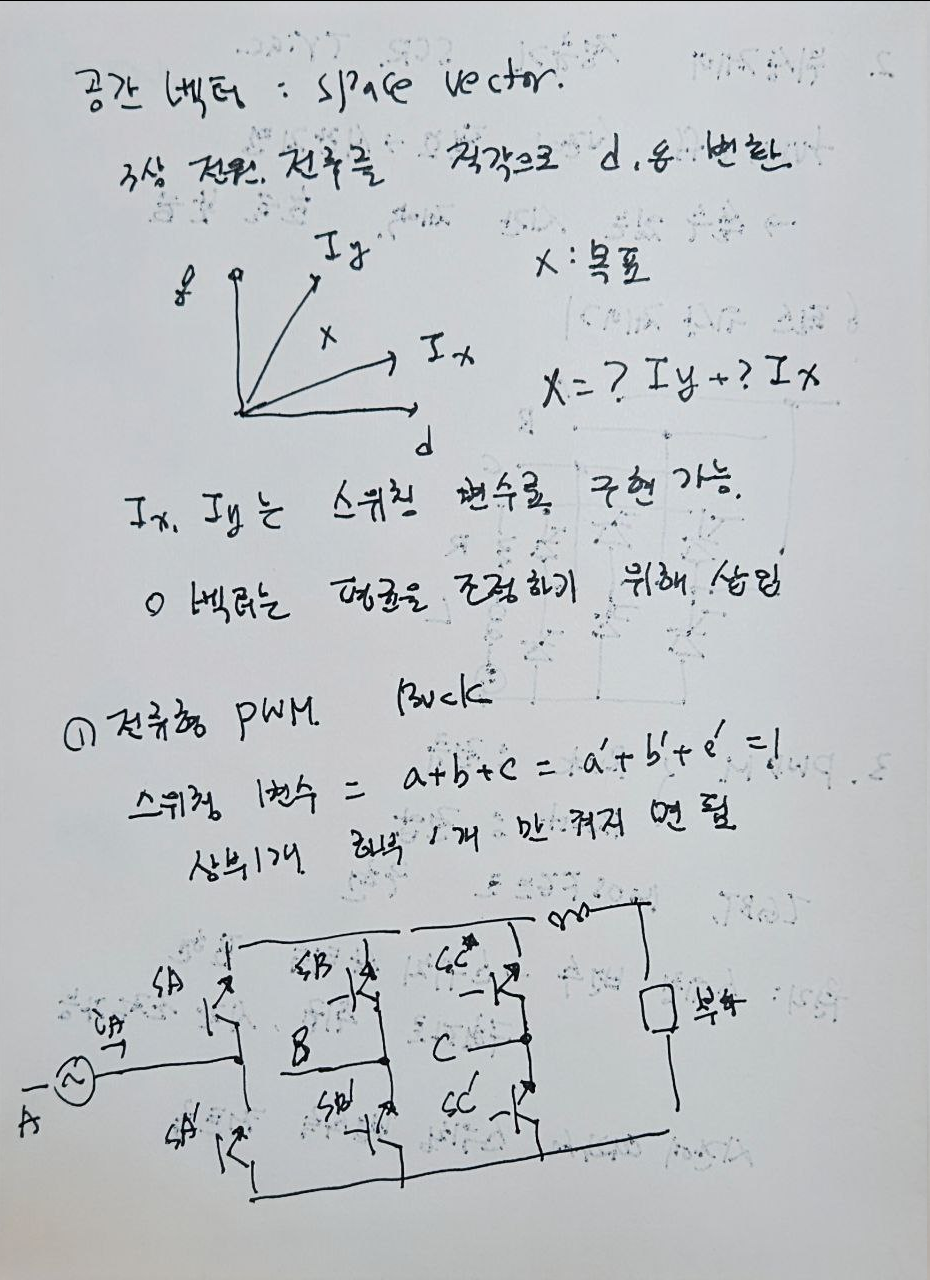 공간 벡터 : space vector.
3상 전원, 전류를 직각으로 d, q 변환
q Iy
x : 목표
x Ix
X = ? Iy + ? Ix
d
Ix, Iy는 스위칭 변수로 구현 가능.
0 벡터는 평균을 조정하기 위해 삽입
① 전류형 PWM. Buck
스위칭 변수 = a+b+c = a'+b'+c' = 1
상부 1개 하부 1개 만 켜지 면 됨
SA SB SC
iA
부하
B C
A
SA' SB' SC'